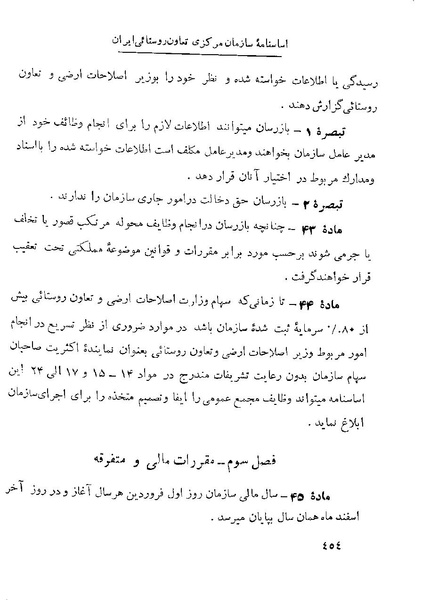 اساسنامهٔ سازمان مرکزی تعاون روستائی ایران
رسیدگی یا اطلاعات خواسته شده و نظر خود را بوزیر اصلاحات ارضی و تعاون
روستائی گزارش دهند .
تبصرهٔ ۱ – بازرسان میتوانند اطلاعات لازم را برای انجام وظائف خود از
مدیر عامل سازمان بخواهند ومدیرعامل مکلف است اطلاعات خواسته شده را بااسناد
ومدارك مربوط در اختیار آنان قرار دهد .
تبصرهٔ ۲ – بازرسان حق دخالت درامور جاری سازمان را ندارند .
مادهٔ ۴۳ – چنانچه بازرسان درانجام وظایف محوله مرتکب قصور یا تخلف
یا جرمی شوند برحسب مورد برابر مقررات و قوانین موضوعهٔ مملکتی تحت تعقیب
قرار خواهندگرفت .
مادهٔ ۴۴ – تا زمانی‌که سهام وزارت اصلاحات ارضی و تعاون روستائی بیش
از ۸۰٪ سرمایهٔ ثبت شدهٔ سازمان باشد در موارد ضروری از نظر تسریع در انجام
امور مربوط وزیر اصلاحات ارضی وتعاون روستائی بعنوان نمایندهٔ اکثریت صاحبان
سهام سازمان بدون رعایت تشریفات مندرج در مواد ۱۴ – ۱۵ و ۱۷ الی ۲۴ این
اساسنامه میتواند وظایف مجمع عمومی را ایفا وتصمیم متخذه را برای اجرای‌سازمان
ابلاغ نماید .
فصل سوم – مقررات مالی و متفرقه
مادهٔ ۴۵ – سال مالی سازمان روز اول فروردین هرسال آغاز و در روز آخر
اسفند ماه همان سال بپایان میرسد .
۴۵۴